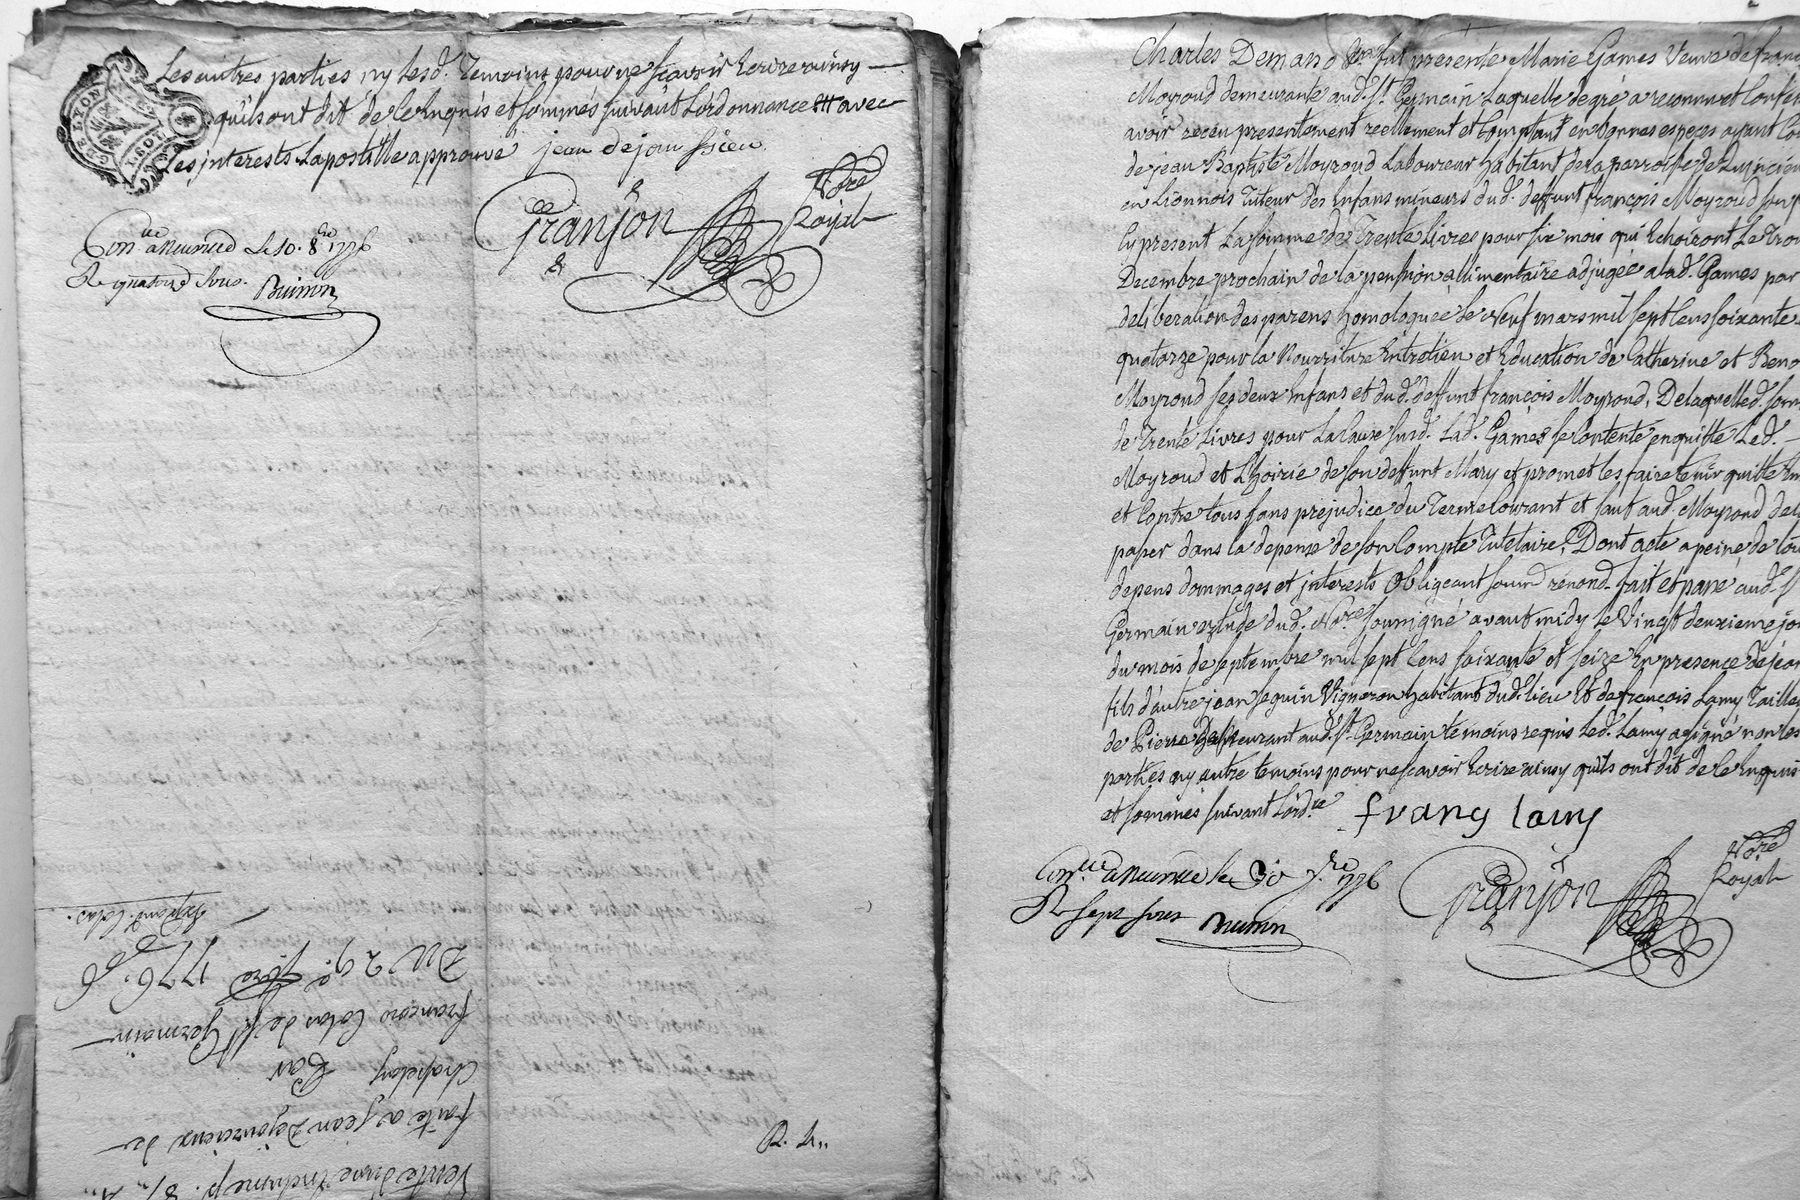 Les autres parties ny lesd. Temoins pour ne sçavoir Ecrire ainsy
qu'ils ont dit de ce Enquis et sommés suivant Lordonnance avec
Les interests Lapostille approuvé jean dejoursieu
G. DE LYON
Granjon Nore Royal
Conlle a Neuville Le 10. 8bre 1776
R quatorze sous.
Buirin
R. Ln
Vente d'une
faite a jean Dejourcieux de
Chapelay Par
francois Colas de St Germain
Du 29e. 7bre 1776
Expend. Colas.
Charles Demano fut presente Marie Games Veuve de
Moyroud demeurante aud. St Germain Laquelle de gré a reconnu et
avoir receu presentement reellement et Comptant en bonnes especes ayant
de jean Baptiste Moyroud Laboureur habitant de la parroisse de
en Lionnois Tuteur des Enfans mineurs dud. deffunt françois Moyroud
Cy present La somme de Trente Livres pour six mois qui Echoiront Le
Decembre prochain de la pension allimentaire adjugée a lad. Games par
deliberation des parens homologuée Le Neuf mars mil sept Cens soixante
quatorze pour la Nourriture Entretien et Education de Catherine et
Moyroud ses deux Enfans et dud. deffunt françois Moyroud, De laquelle d.
de Trente Livres pour La Cause susd. Lad. Games se Contente en quitte Led.
Moyroud et L'hoirie de son deffunt Mary et promet les faire tenir quitte
et Contre tous sans prejudice du Terme Courant et sauf aud. Moyroud
passer dans la depense de son Compte Tutelaire, Dont acte a peine de
depens dommages et interests obligeant soumd. renond. fait et passé aud.
Germain etude dud. Nore soussigné avant midy le Vingt deuxieme
du mois de septembre mil sept Cens soixante et seize En presence de
fils d'autre jean Seguin Vigneron habitant dud. lieu Et de françois Lamy
de Pierre Demeurant aud. St Germain temoins requis Led. Lamy a signé non les
parties ny autre temoins pour ne sçavoir Ecrire ainsy qu'ils ont dit de ce Enquis
et sommés suivant Lordce franç lamy
Conlle a Neuville le 30 7bre 1776
R sept sous Buirin
Granjon Nore Royal